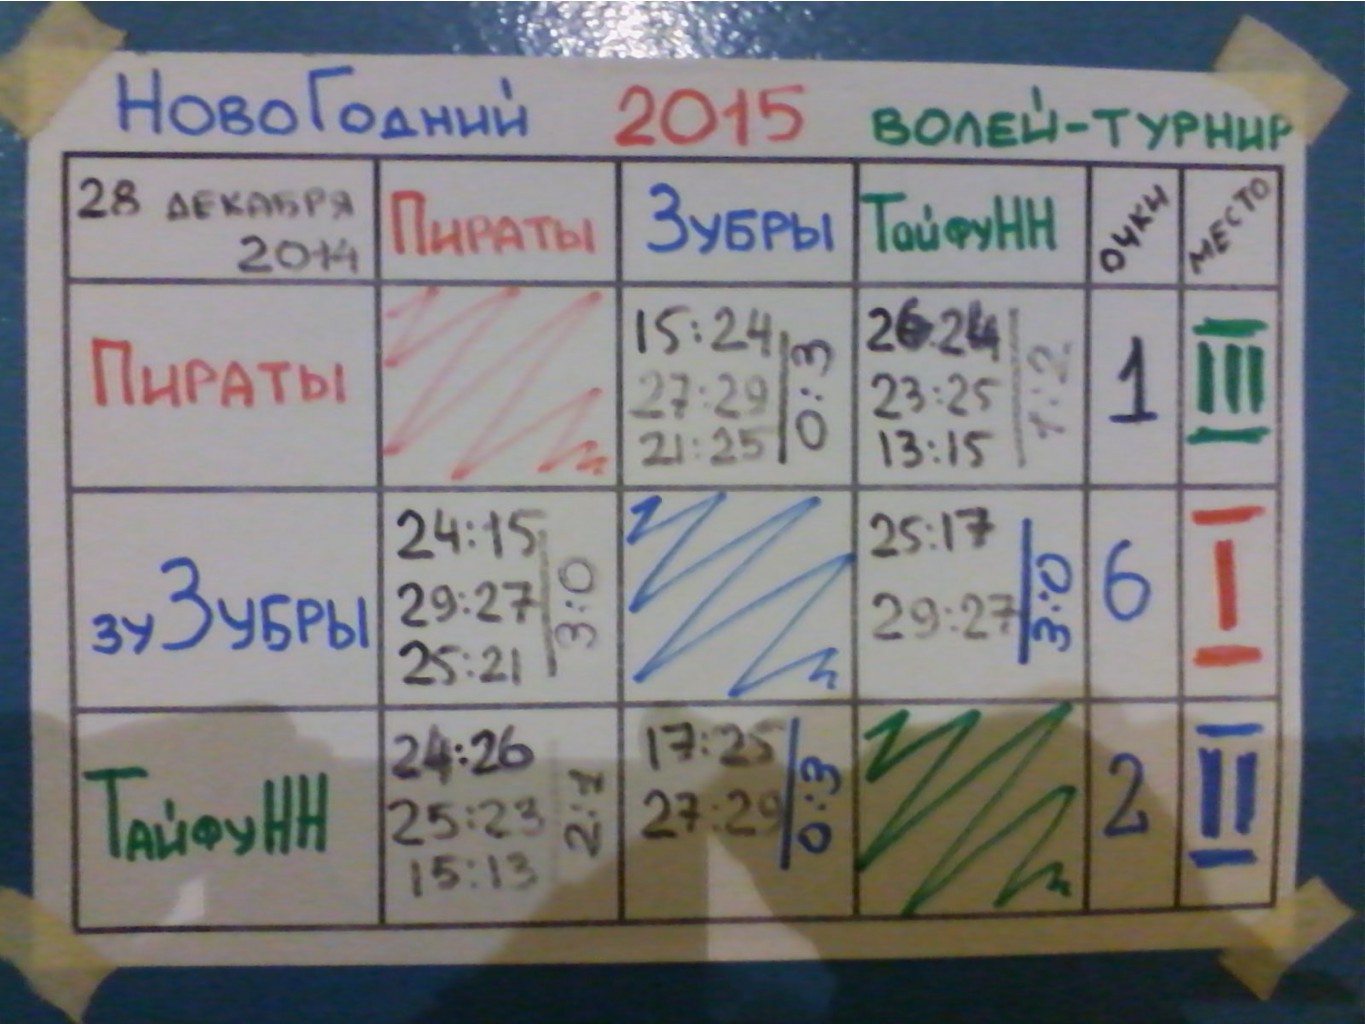 НовоГодний 2015 волей-турнир
28 декабря 2014 Пираты Зубры ТайфуНН очки место
Пираты 15:24 27:29 21:25 0:3 26:24 23:25 13:15 1:2 1 III
зуЗубры 24:15 29:27 25:21 3:0 25:17 29:27 3:0 6 I
ТайфуНН 24:26 25:23 15:13 2:1 17:25 27:29 0:3 2 II